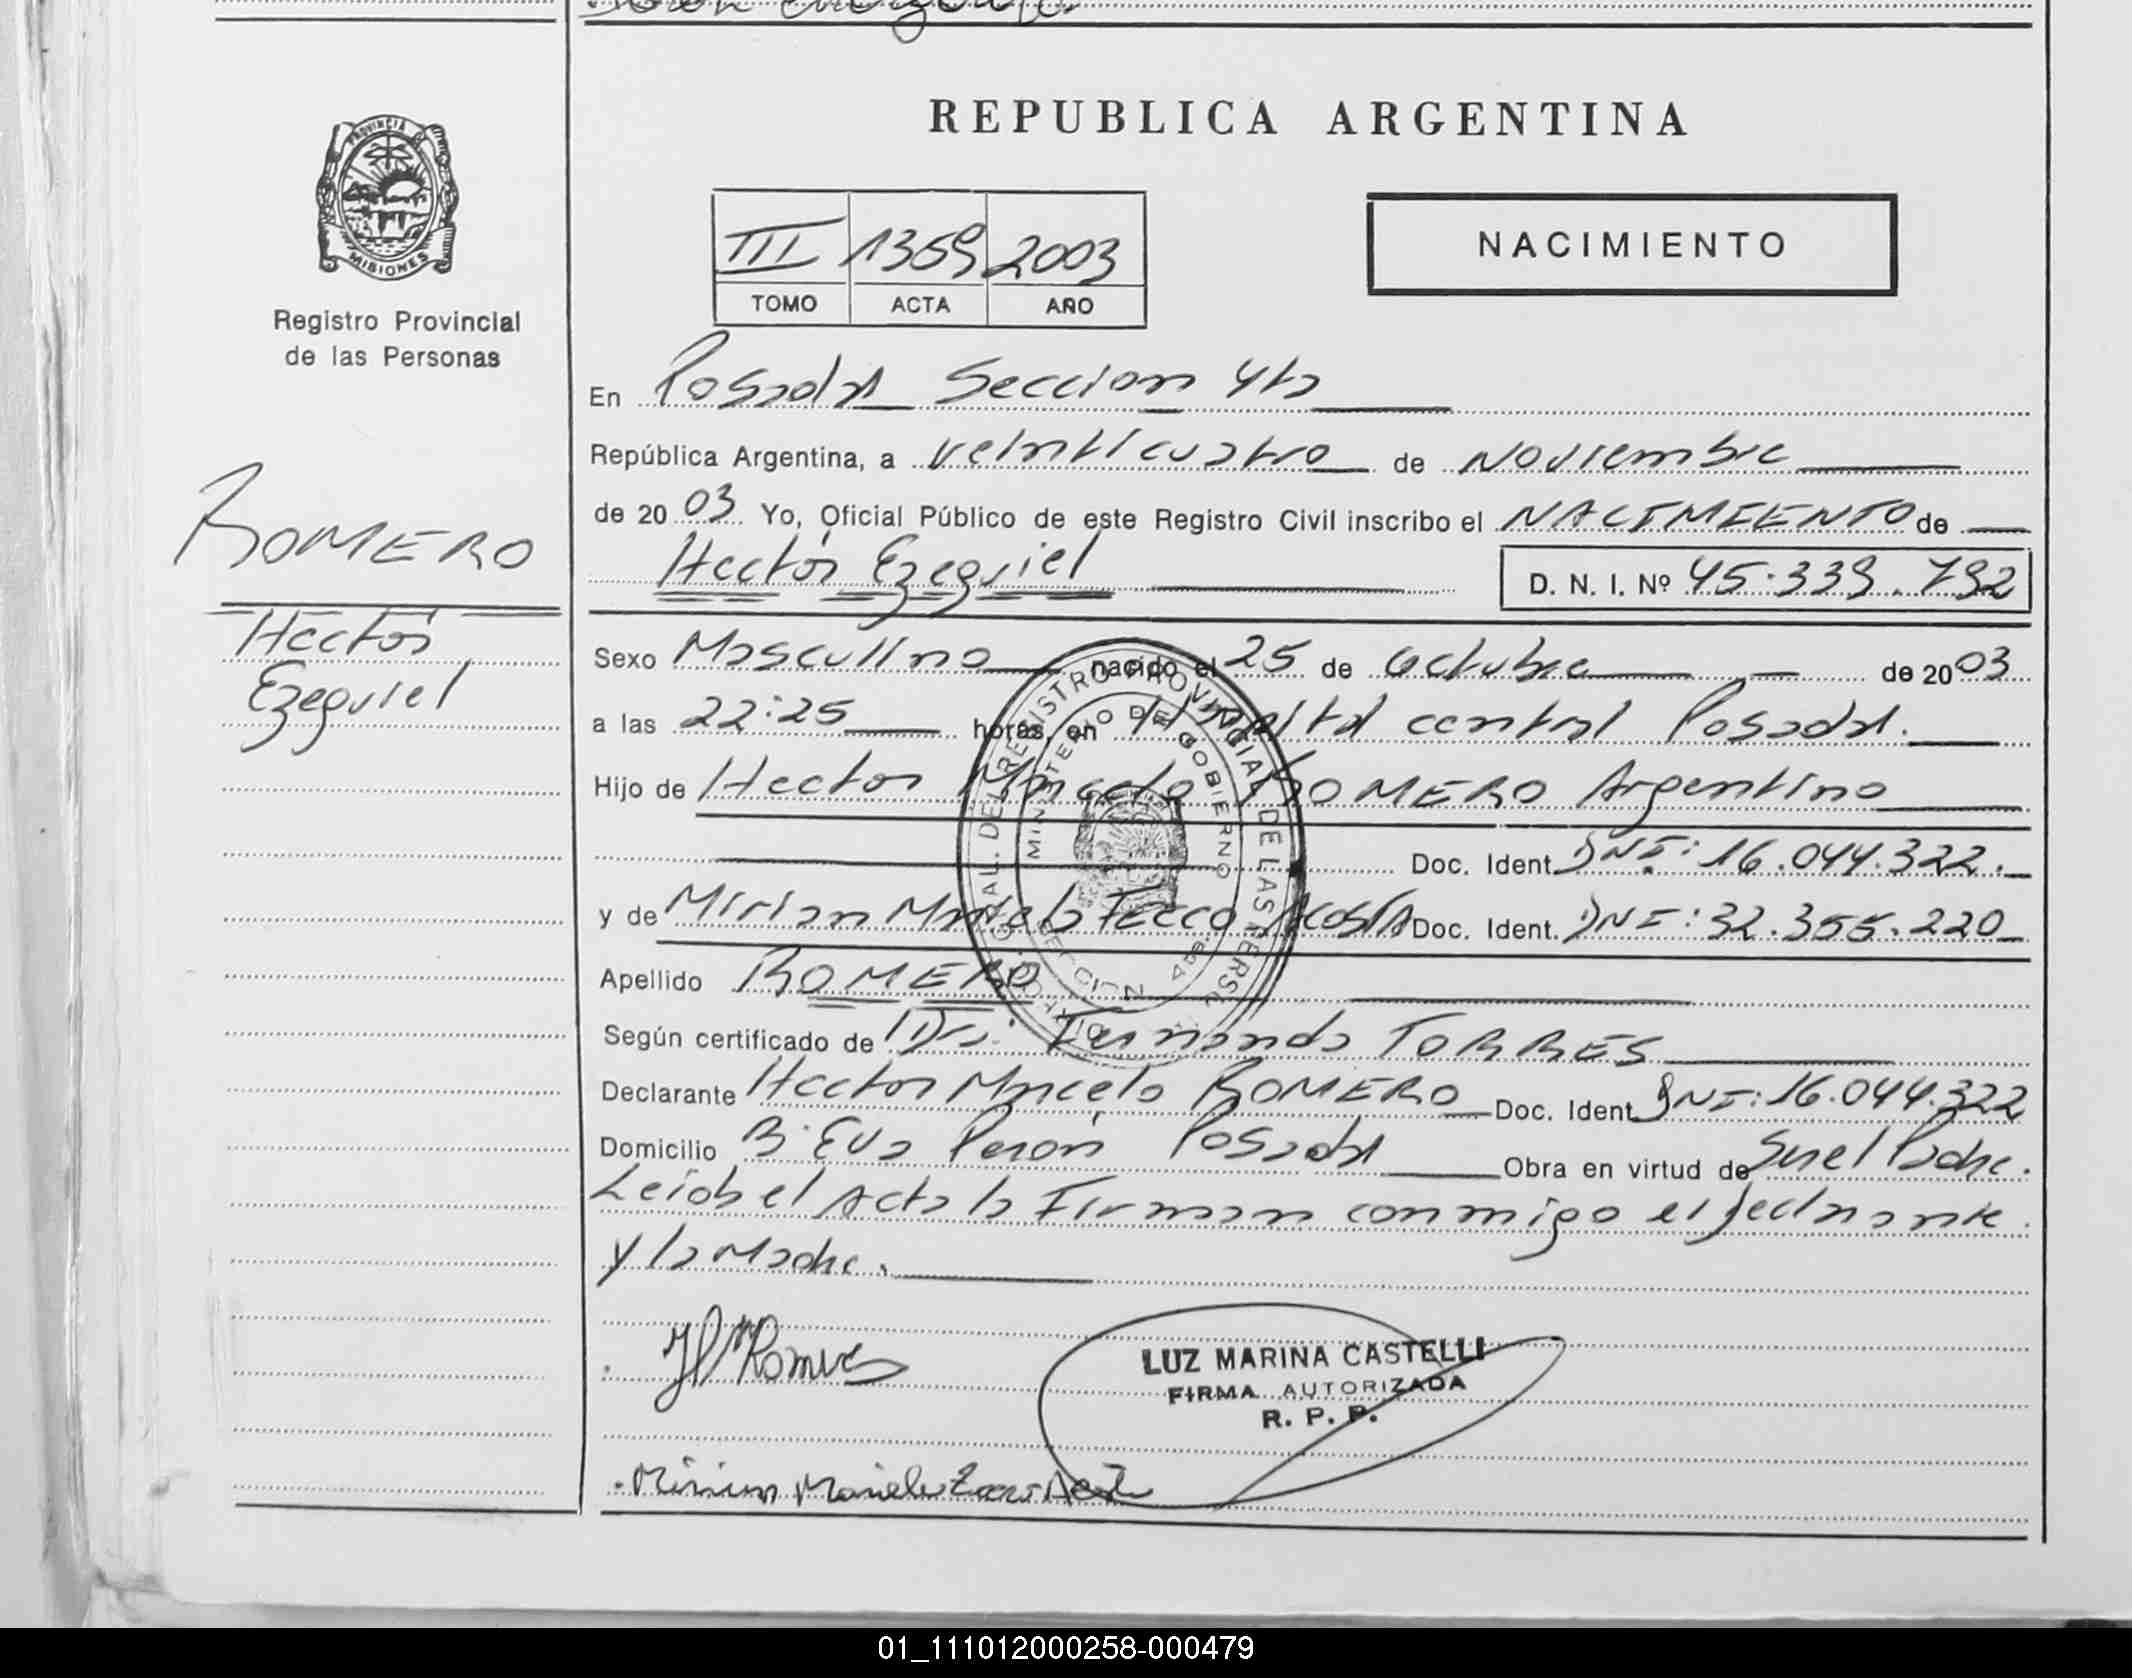 REPUBLICA ARGENTINA
PROVINCIA DE
MISIONES
Registro Provincial
de las Personas
III 1359 2003
TOMO ACTA AÑO
NACIMIENTO
En Posadas Seccion 4ta
República Argentina, a veinticuatro de Noviembre
de 2003 Yo, Oficial Público de este Registro Civil inscribo el NACIMIENTO de
Hector Ezequiel D. N. I. Nº 45.339.792
ROMERO
Hector
Ezequiel
Sexo Masculino nacido el 25 de Octubre de 2003
a las 22:25 horas, en Hospital central Posadas.
Hijo de Hector Marcelo ROMERO Argentino
Doc. Ident. DNI: 16.044.322.
y de Mirian Mariela ACOSTA Doc. Ident. DNI: 32.355.220
Apellido ROMERO
Según certificado de Dra. Fernanda TORRES
Declarante Hector Marcelo ROMERO Doc. Ident. DNI: 16.044.322
Domicilio B. Eva Perón Posadas Obra en virtud de Ser el Padre.
Leida el Acta la Firman conmigo el declarante
y la Madre.
DEL REGISTRO PROVINCIAL DE LAS PERSONAS
MINISTERIO DE GOBIERNO
H M Romero
LUZ MARINA CASTELLI
FIRMA AUTORIZADA
R. P. P.
01_111012000258-000479